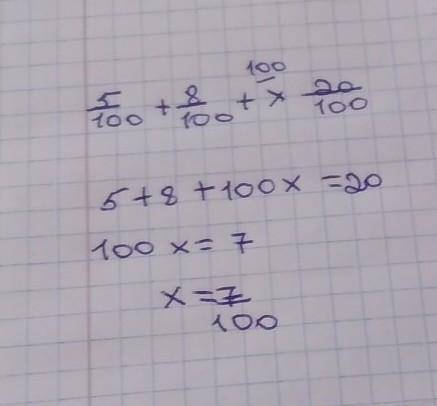 5/100 + 8/100 + 100/x 20/100
5 + 8 + 100x = 20
100 x = 7
x = 7/100